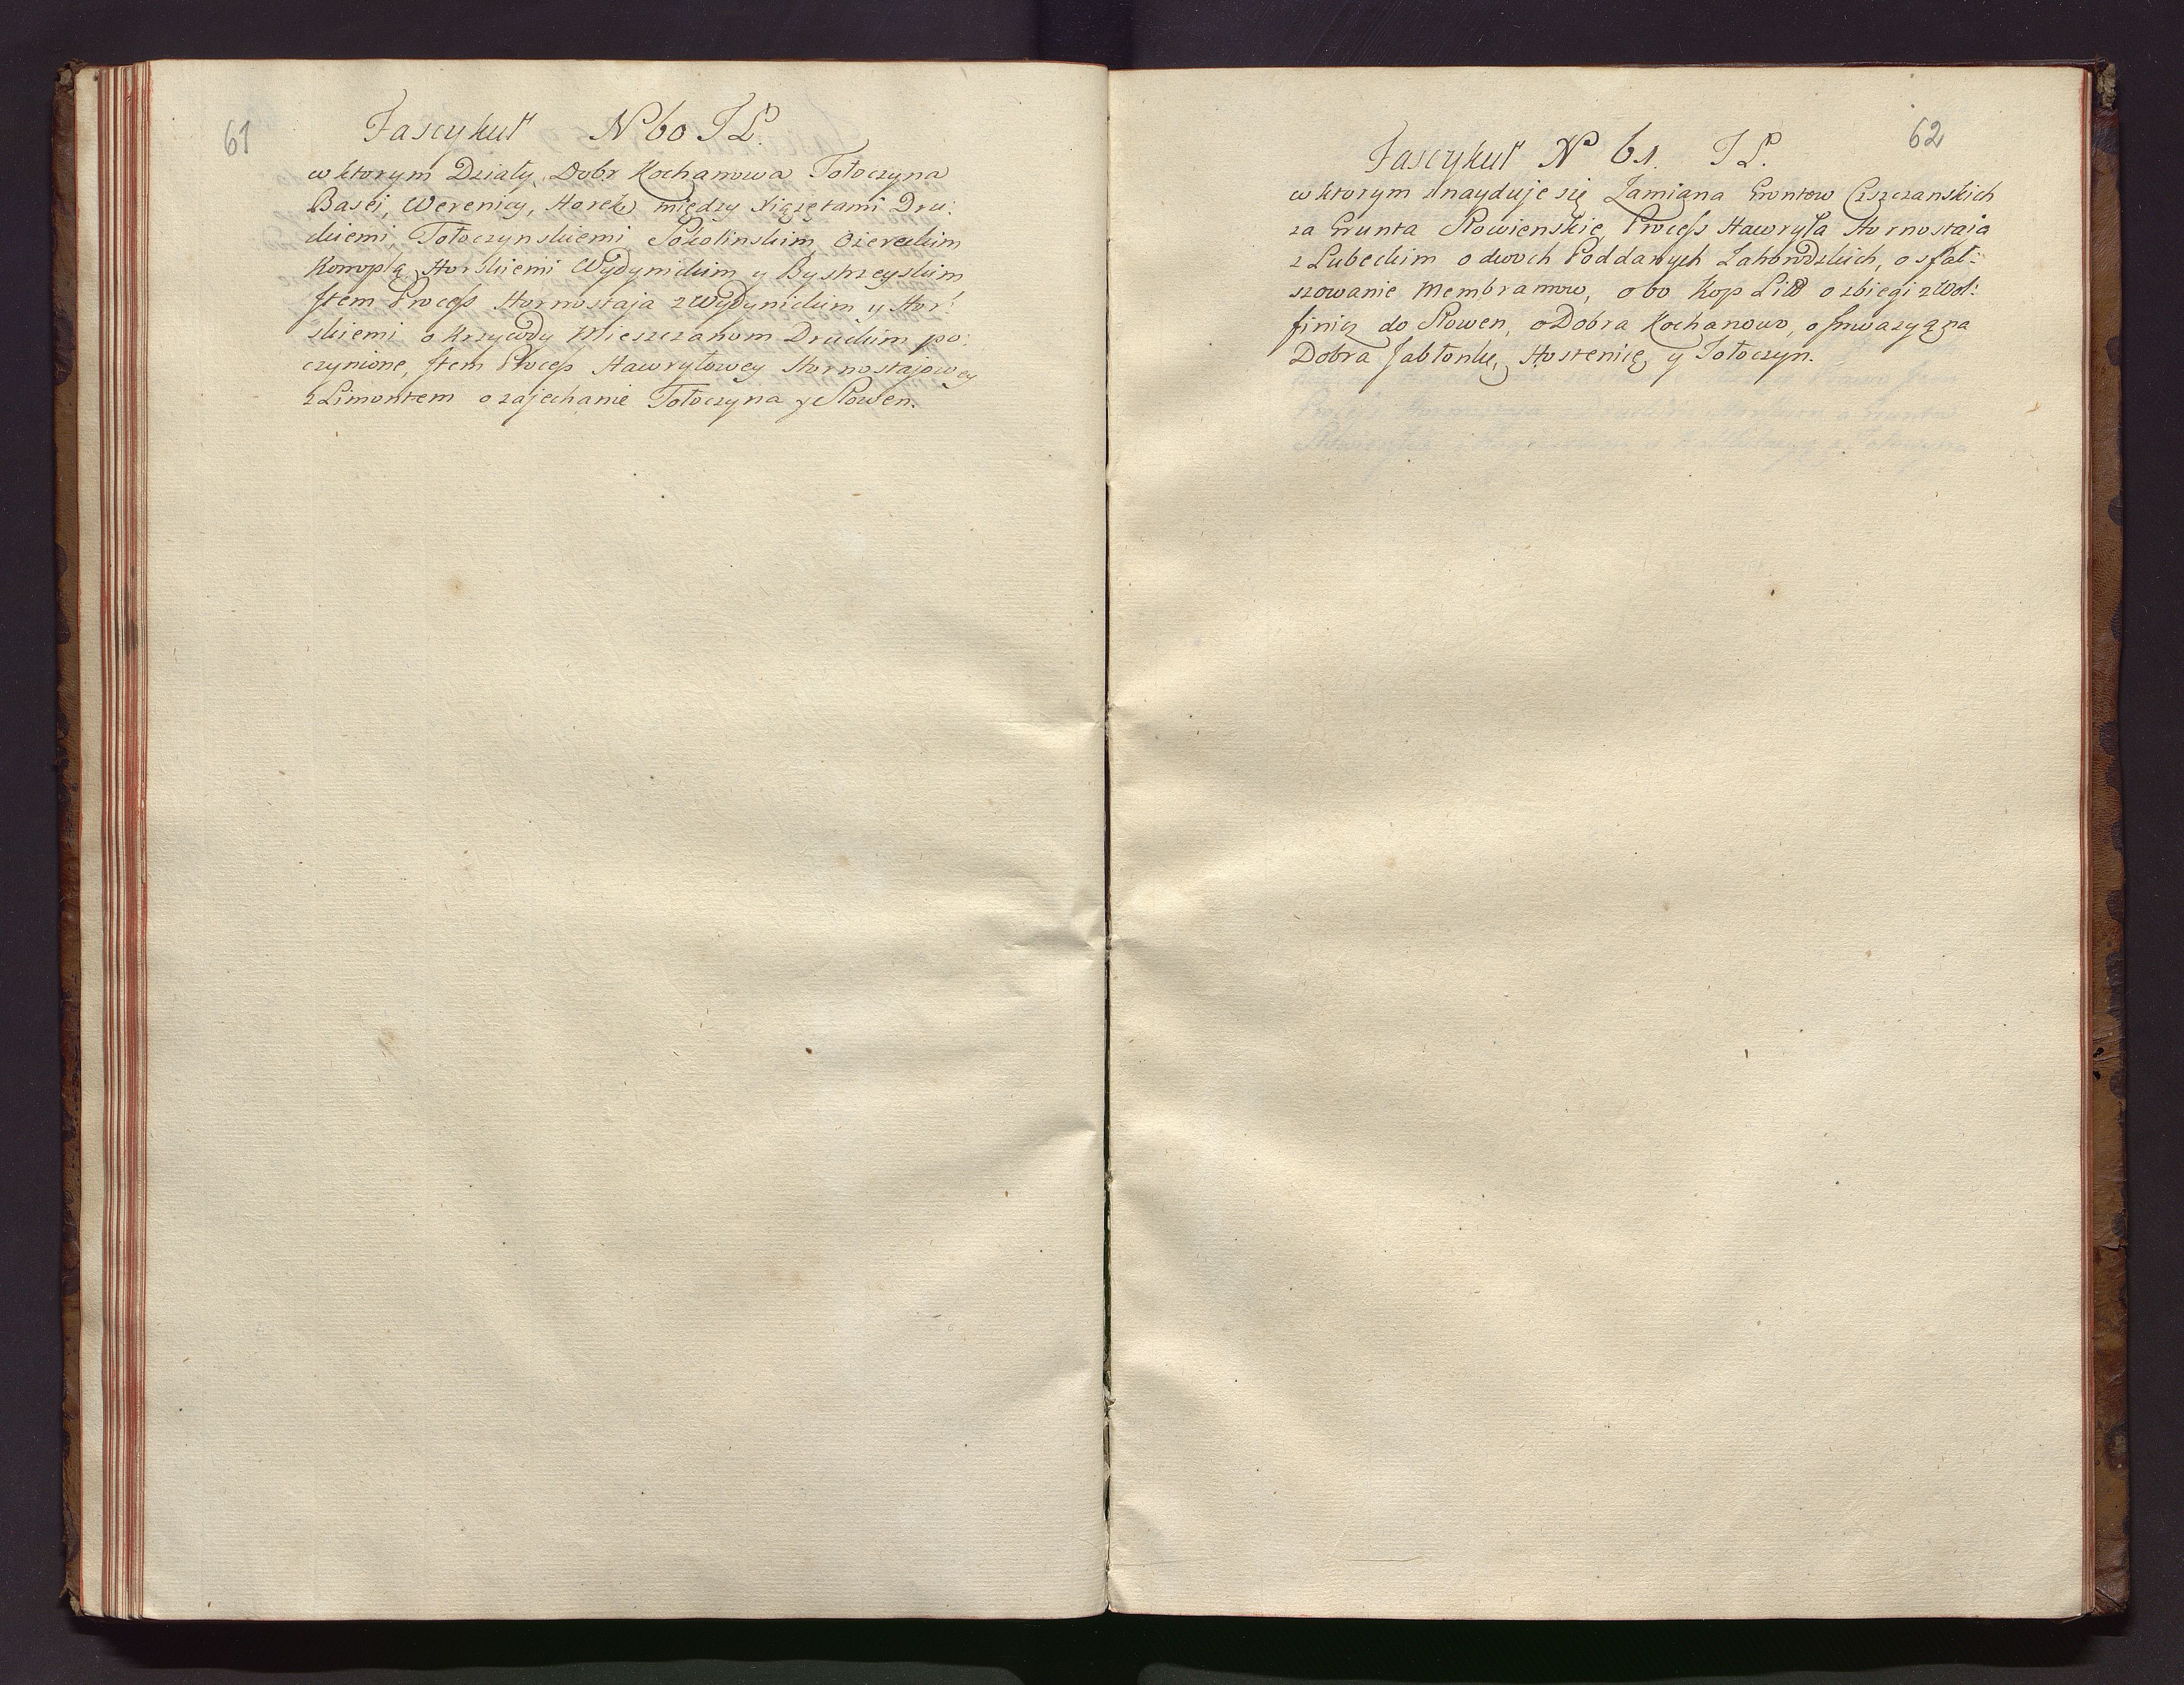 61
Fascykuł N 60 T L.
w ktorym Działy Dobr Kochanowa Tołoczyna
Basei, Werenicy, Horek między Xiążętami Dru:
ckiemi Tołoczynskiemi Sokolinskim Ozereckim
Konoplą Horskiemi Wydynickim y Bystrzeyskim
Jtem Process Hornostaja z Wydynickim y Hor:
skiemi o krzywdy Mieszczanom Druckim po:
czynione, Jtem Process Hawryłowey Hornostajowey
z Limontem o zajechanie Tołoczyna y Słowen.
62
Fascykuł N 61. T L.
w ktorym znayduje się Zamiana Gruntow Ciszczanskich
za Grunta Słowienskie, Process Hawryła Hornostaia
z Lubeckim o dwoch Poddanych Zahorodzkich, o sfał:
szowanie Membramow, o 60 Kop Litt o zbiegi z Woł:
finicz do Słowen, o Dobra Kochanowo, o Jnwazyą na
Dobra Jabłonkę, Hostenicę, y Tołoczyn.